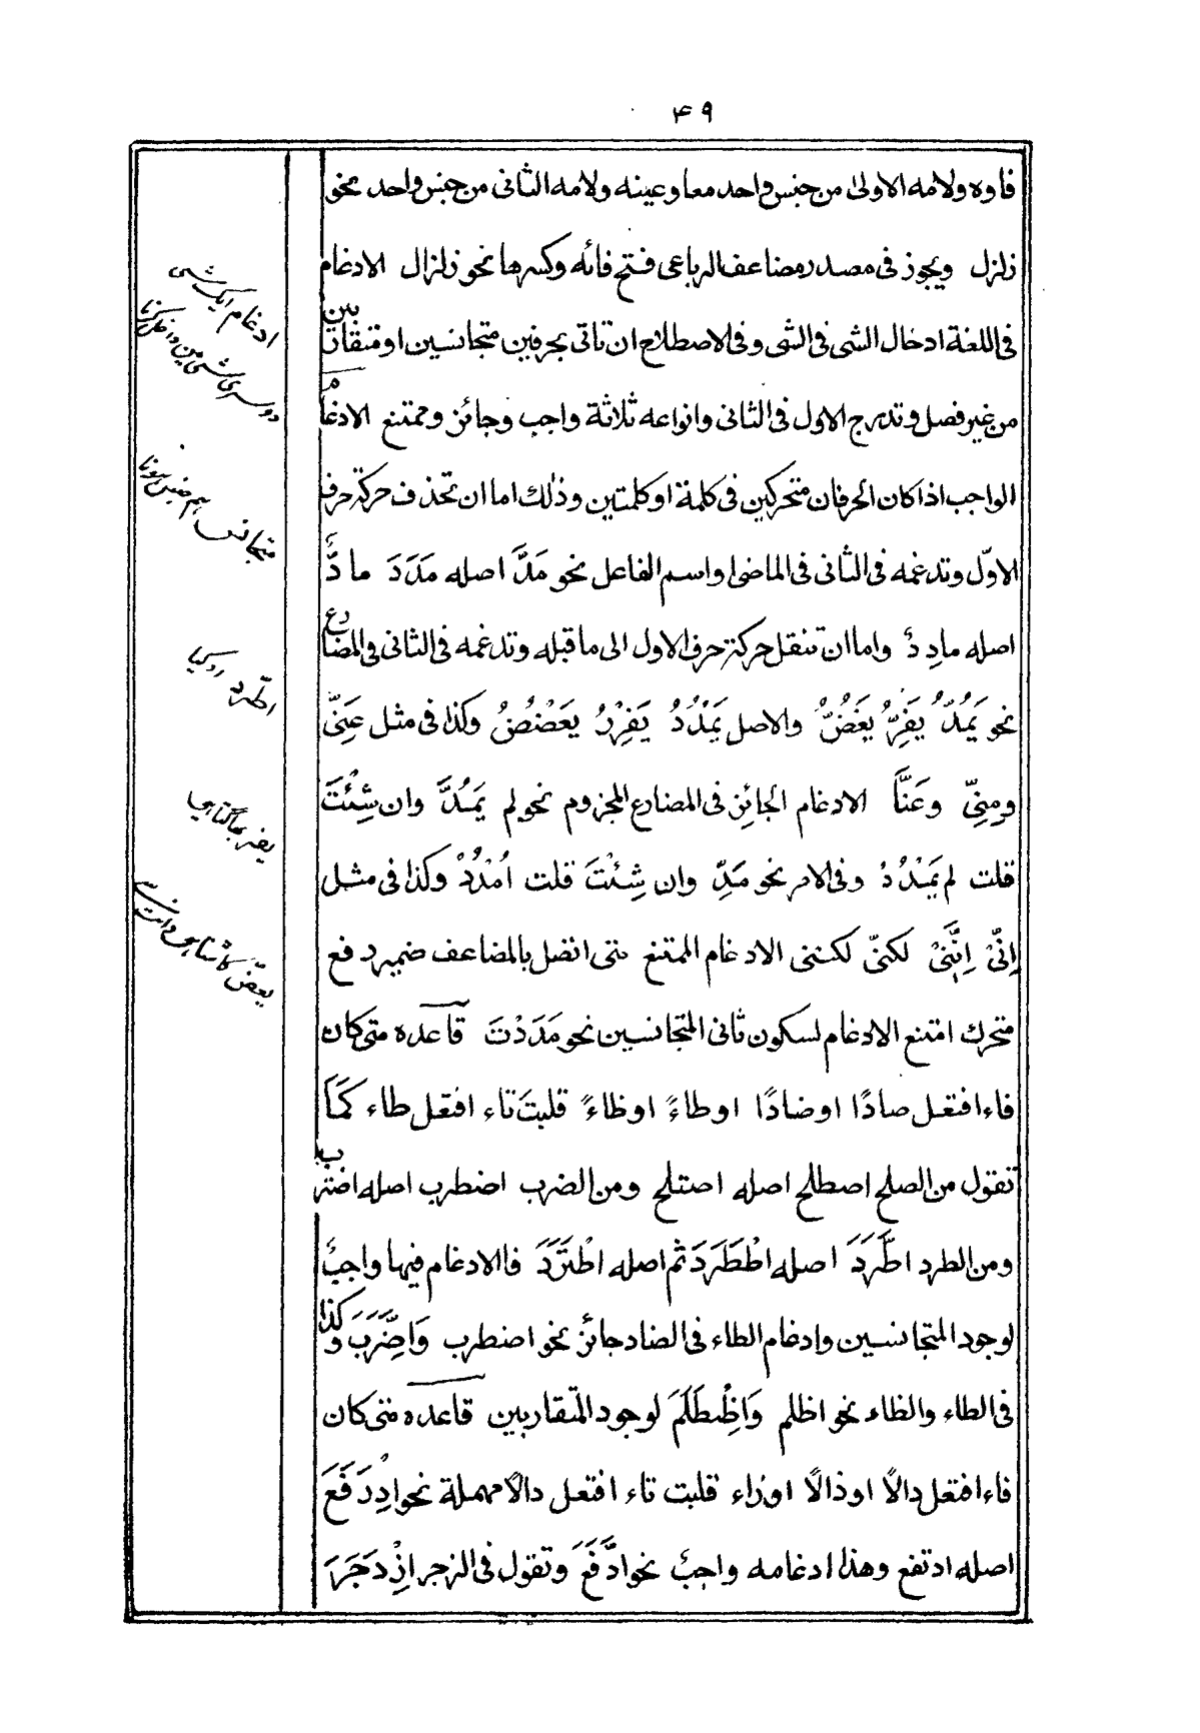 ۴۹
فاوه ولامه الاولیٰ من جنس واحد معا وعینه ولامه الثانی من جنس واحد نحو
زلزل ویجوز فی مصدر مضاعف الرباعی فتح فائه وکسرها نحو زلزال الادغام
فی اللغة ادخال الشی فی الشی وفی الاصطلاح ان تاتی بحرفین متجانسین او متقاربین
من غیر فصل وتدرج الاول فی الثانی وانواعه ثلاثة واجب وجائز وممتنع الادغام
الواجب اذا کان الحرفان متحرکین فی کلمة او کلمتین وذلك اما ان تحذف حرکة حرف
الاوّل وتدغمه فی الثانی فی الماضی واسم الفاعل نحو مَدَّ اصله مَدَدَ مادٌّ
اصله مادِدٌ واما ان تنقل حرکة حرف الاول الی ماقبله وتدغمه فی الثانی فی المضارع
نحو یَمُدُّ یَفِرُّ یَعَضُّ والاصل یَمْدُدُ یَفْرِرُ یَعْضَضُ وکذا فی مثل عَنِّیْ
ومِنِّیْ وعَنَّا الادغام الجائِز فی المضارع المجزوم نحو لم یَمُدَّ وان شِئْتَ
قلت لم یَمْدُدْ وفی الامر نحو مُدِّ وان شِئْتَ قلت اُمْدُدْ وکذا فی مثل
اِنِّیْ اِنَّنِیْ لکنّی لکننی الادغام الممتنع متی اتصل بالمضاعف ضمیر رفع
متحرك امتنع الادغام لسکون ثانی المتجانسین نحو مَدَدْتَ قاعده متی کان
فاء افتعل صادًا او ضادًا او طاءً او ظاءً قلبتَ تاء افتعل طاء کَمَا
تقول من الصلح اصطلح اصله اصتلح ومن الضرب اضطرب اصله اضترب
ومن الطرد اطَّرَدَ اصله اطْطَرَدَ ثم اصله اطْتَرَدَ فالادغام فیها واجبٌ
لوجود المتجانسین وادغام الطاء فی الضاد جائز نحو اضطرب وَاضَّرَبَ وکذا
فی الطاء والظاء نحو اظلم وَاظْطَلَمَ لوجود المتقاربین قاعده متی کان
فاء افتعل دالًا او ذالًا او زاء قلبت تاء افتعل دالًا مهملة نحو ادْدَفَعَ
اصله ادتفع وهذا ادغامه واجبٌ نحو ادَّفَعَ وتقول فی الزجر ازْدَجَرَ
ادغام ایک شی
دوسری شی میں داخل کرنا
متجانس ہم جنس ہونا
اطّرد
یفر بھاگتا ہے